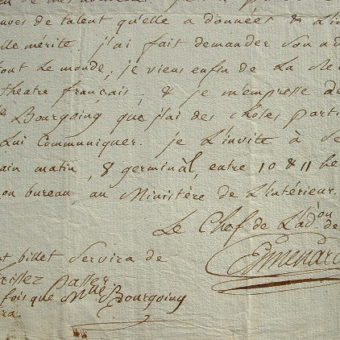 uves de talent qu'elle a données & l'in
elle mérite. j'ai fait demander son ad
tout le monde, je viens enfin de la de
theatre français, & je m'empresse de
Bourgoing que j'ai des choses parti
lui communiquer. je l'invite à se
ain matin, 8 germinal, entre 10 & 11 he
on bureau au Ministère de l'intérieur.
Le Chef de l'ad.on de
Esmenard
t billet servira de
rissez passer
fois que Mlle Bourgoing
ra.